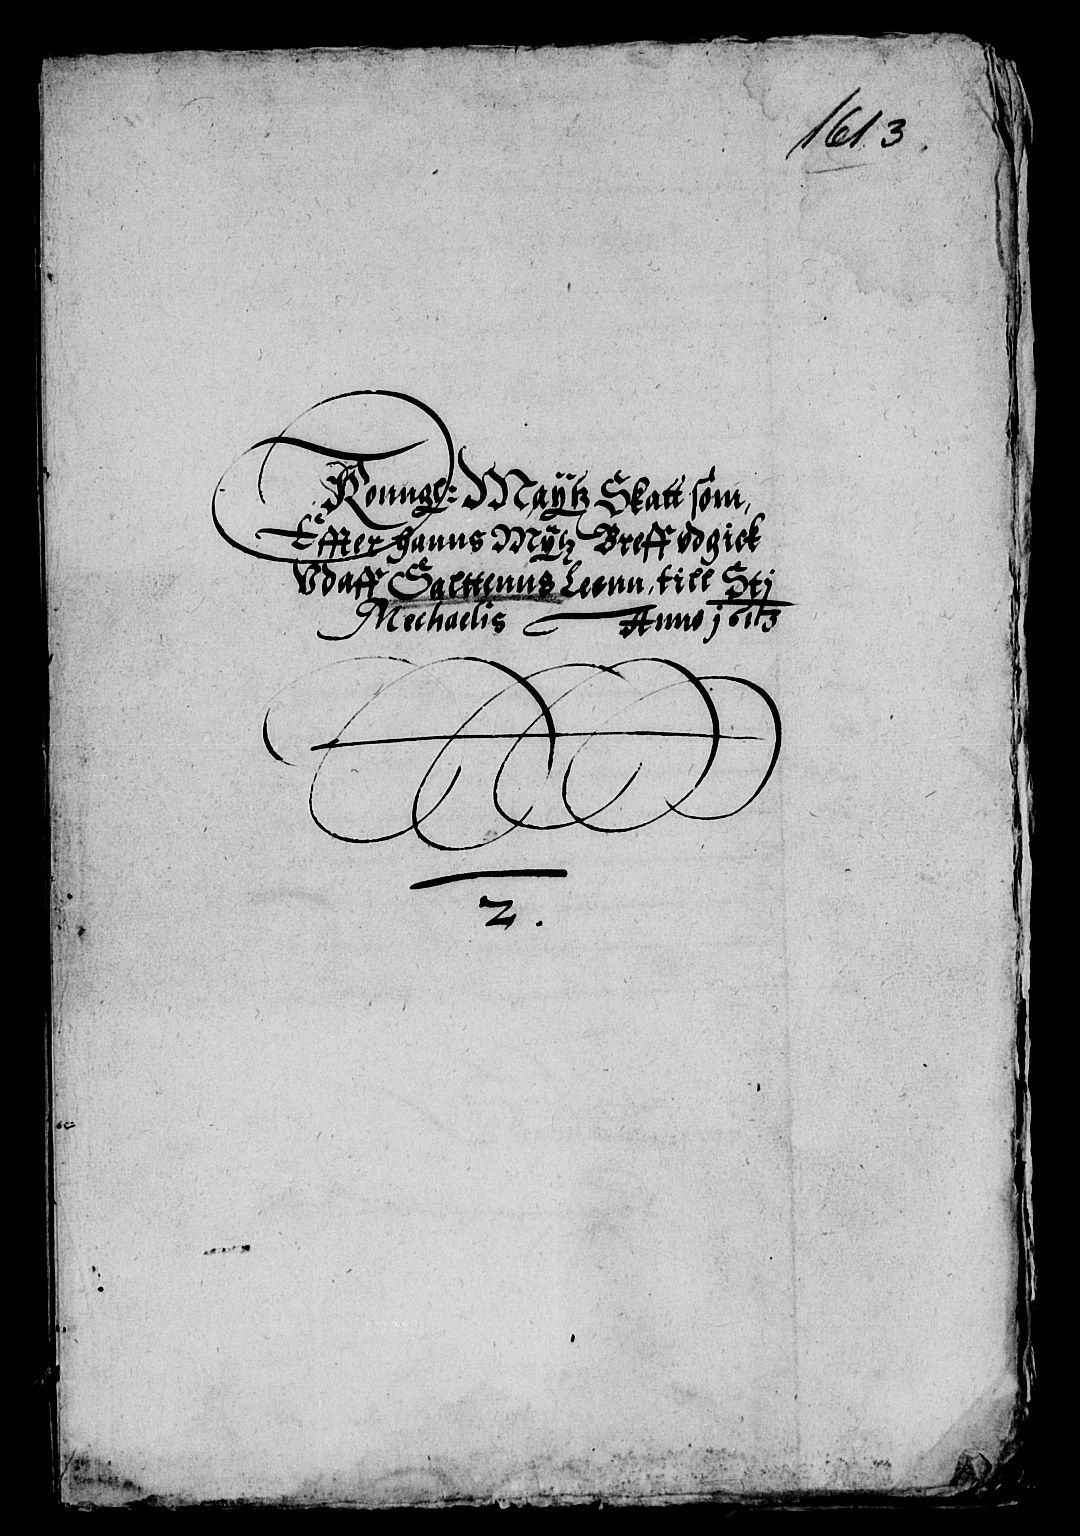 1613.
Konngl: Maÿtz Skatt som,
Effter hanns Mÿtz Breff vdgick
Vdaff Salttenns Leenn, till Stj
Mechaelis Anno 1613
2.